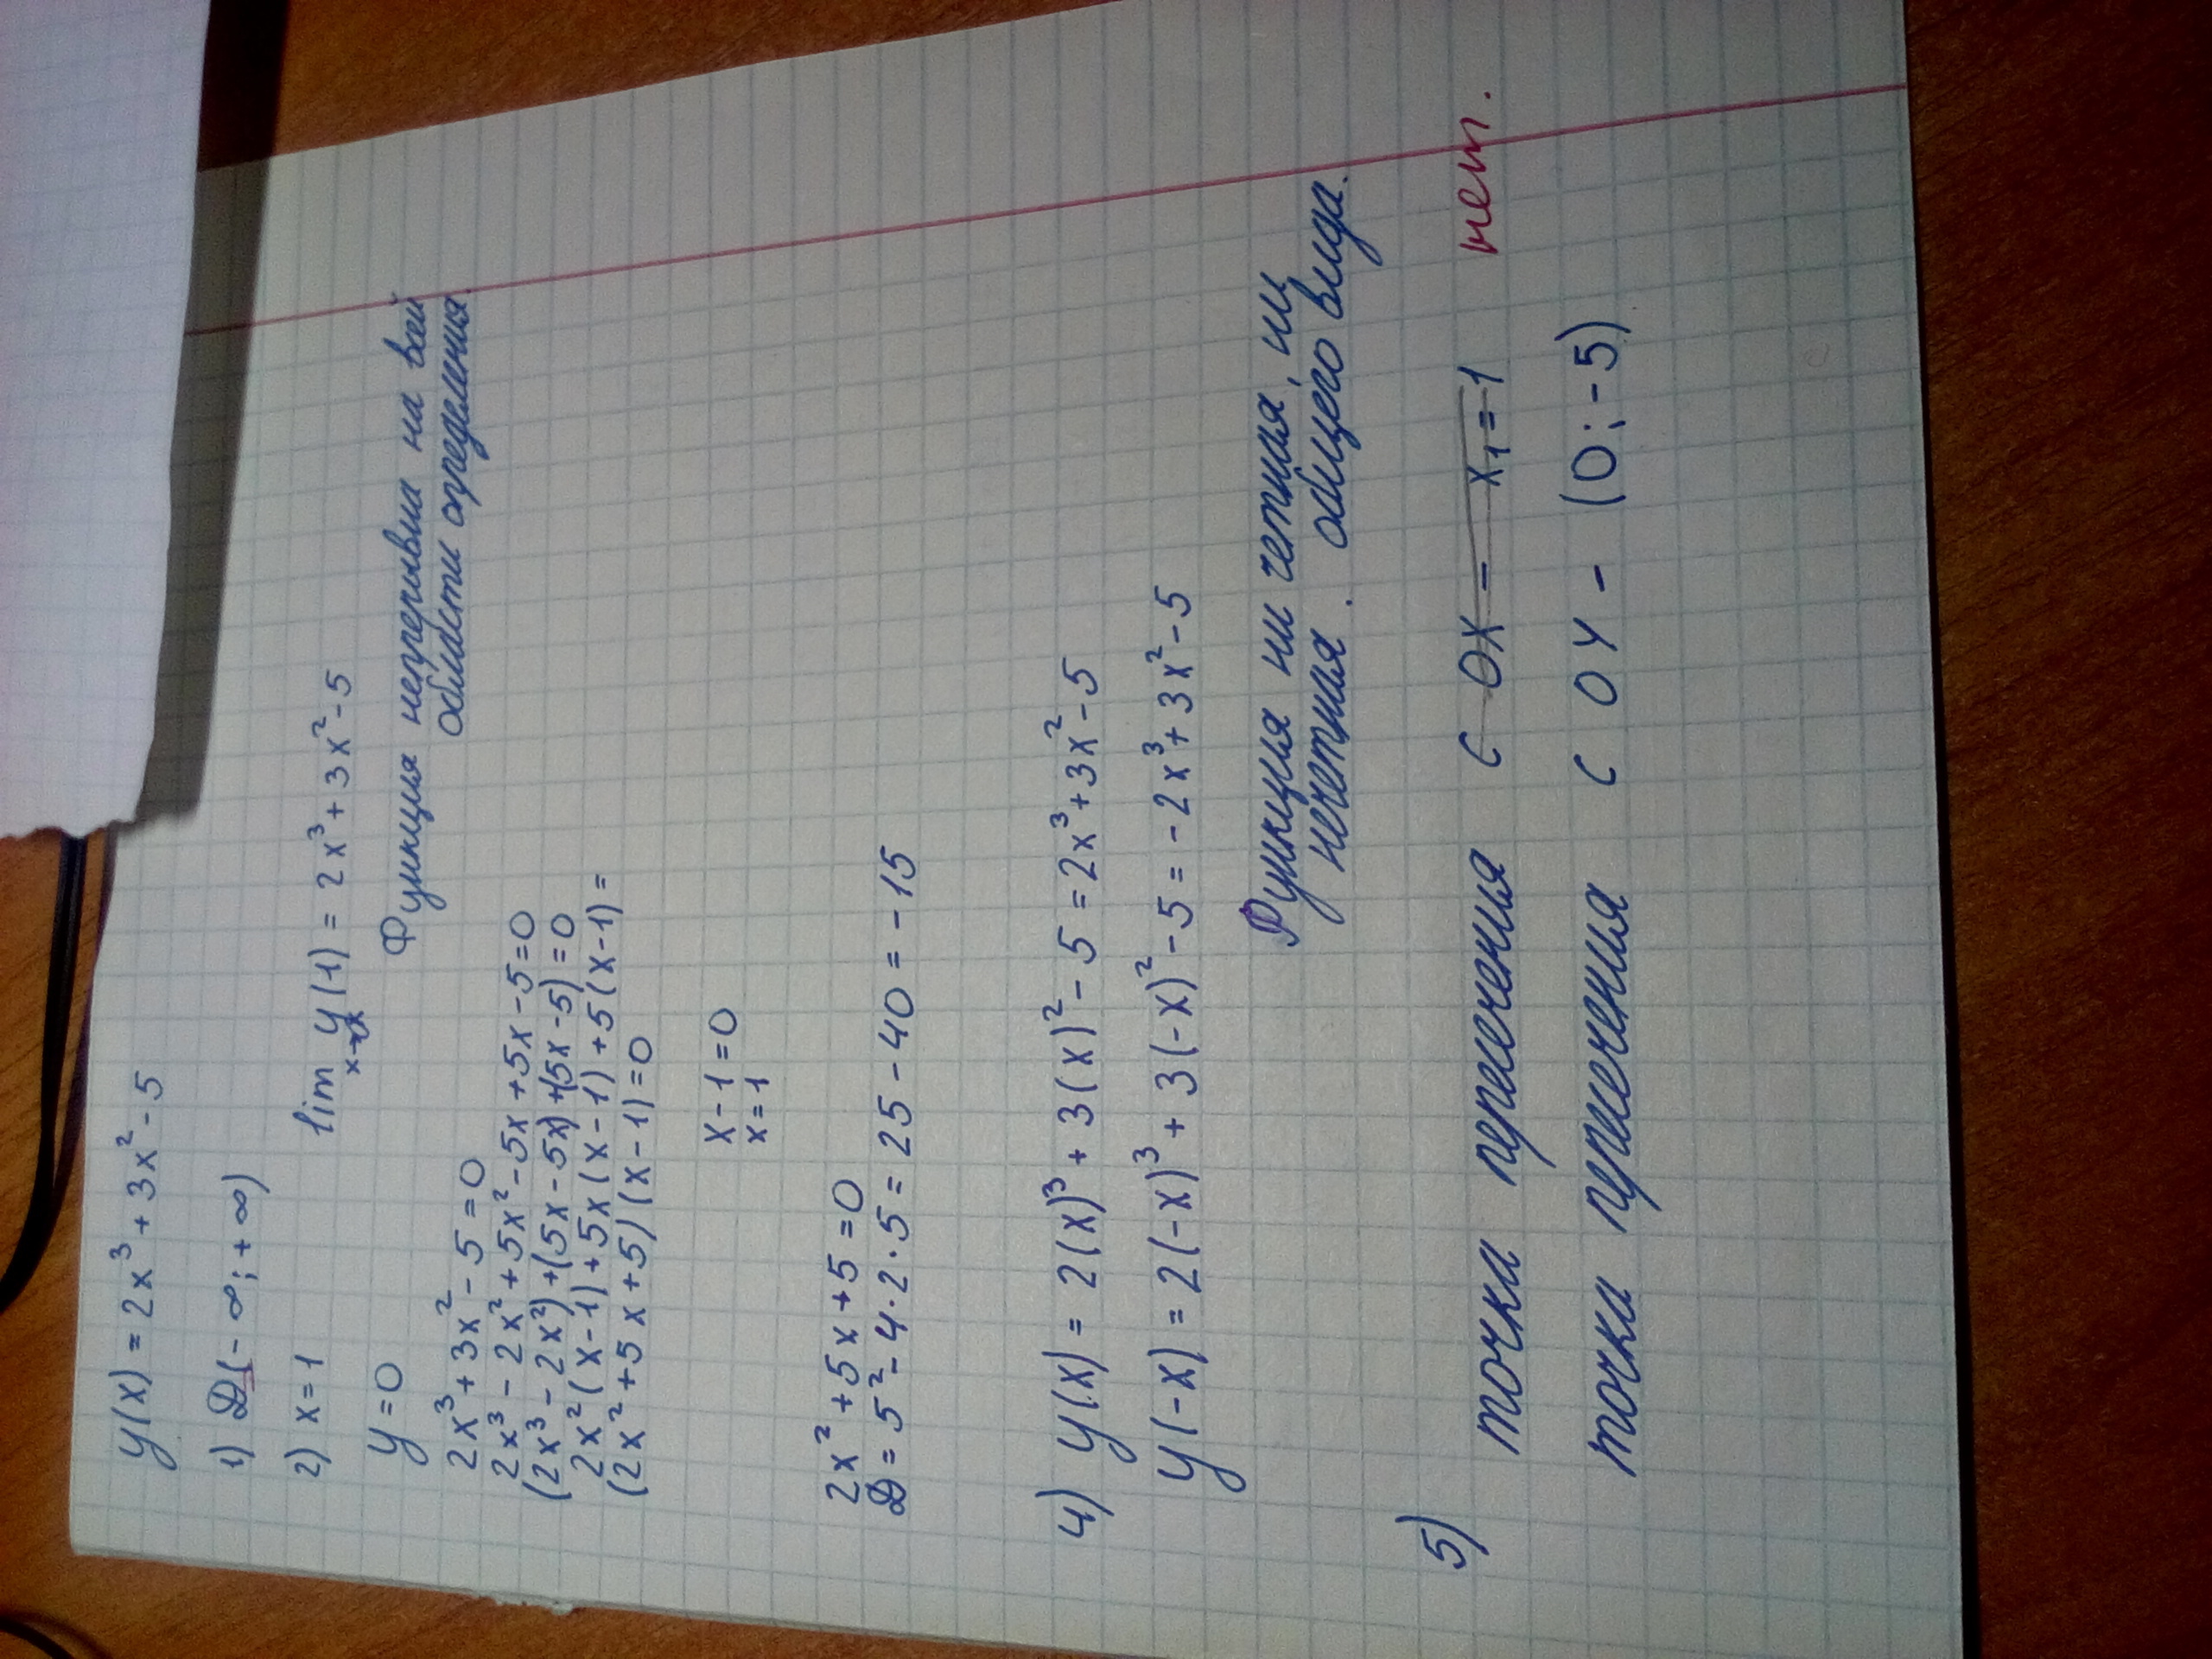 y(x) = 2x³ + 3x² - 5
1) D(-∞; +∞)
2) x=1
lim y(1) = 2x³ + 3x² - 5
Функция непрерывна на всей
области определения.
y=0
2x³ + 3x² - 5 = 0
2x³ - 2x² + 5x² - 5x + 5x - 5 = 0
(2x³ - 2x²) + (5x - 5x) + (5x - 5) = 0
2x² (x-1) + 5x (x-1) + 5 (x-1) =
(2x² + 5x + 5) (x-1) = 0
x-1=0
x=1
2x² + 5x + 5 = 0
D = 5² - 4·2·5 = 25 - 40 = -15
4) y(x) = 2(x)³ + 3(x)² - 5 = 2x³ + 3x² - 5
y(-x) = 2(-x)³ + 3(-x)² - 5 = -2x³ + 3x² - 5
Функция ни четная, ни
нечетная. общего вида.
5) точка пересечения с OX - x₁=1 нет.
точка пересечения с OY - (0; -5)